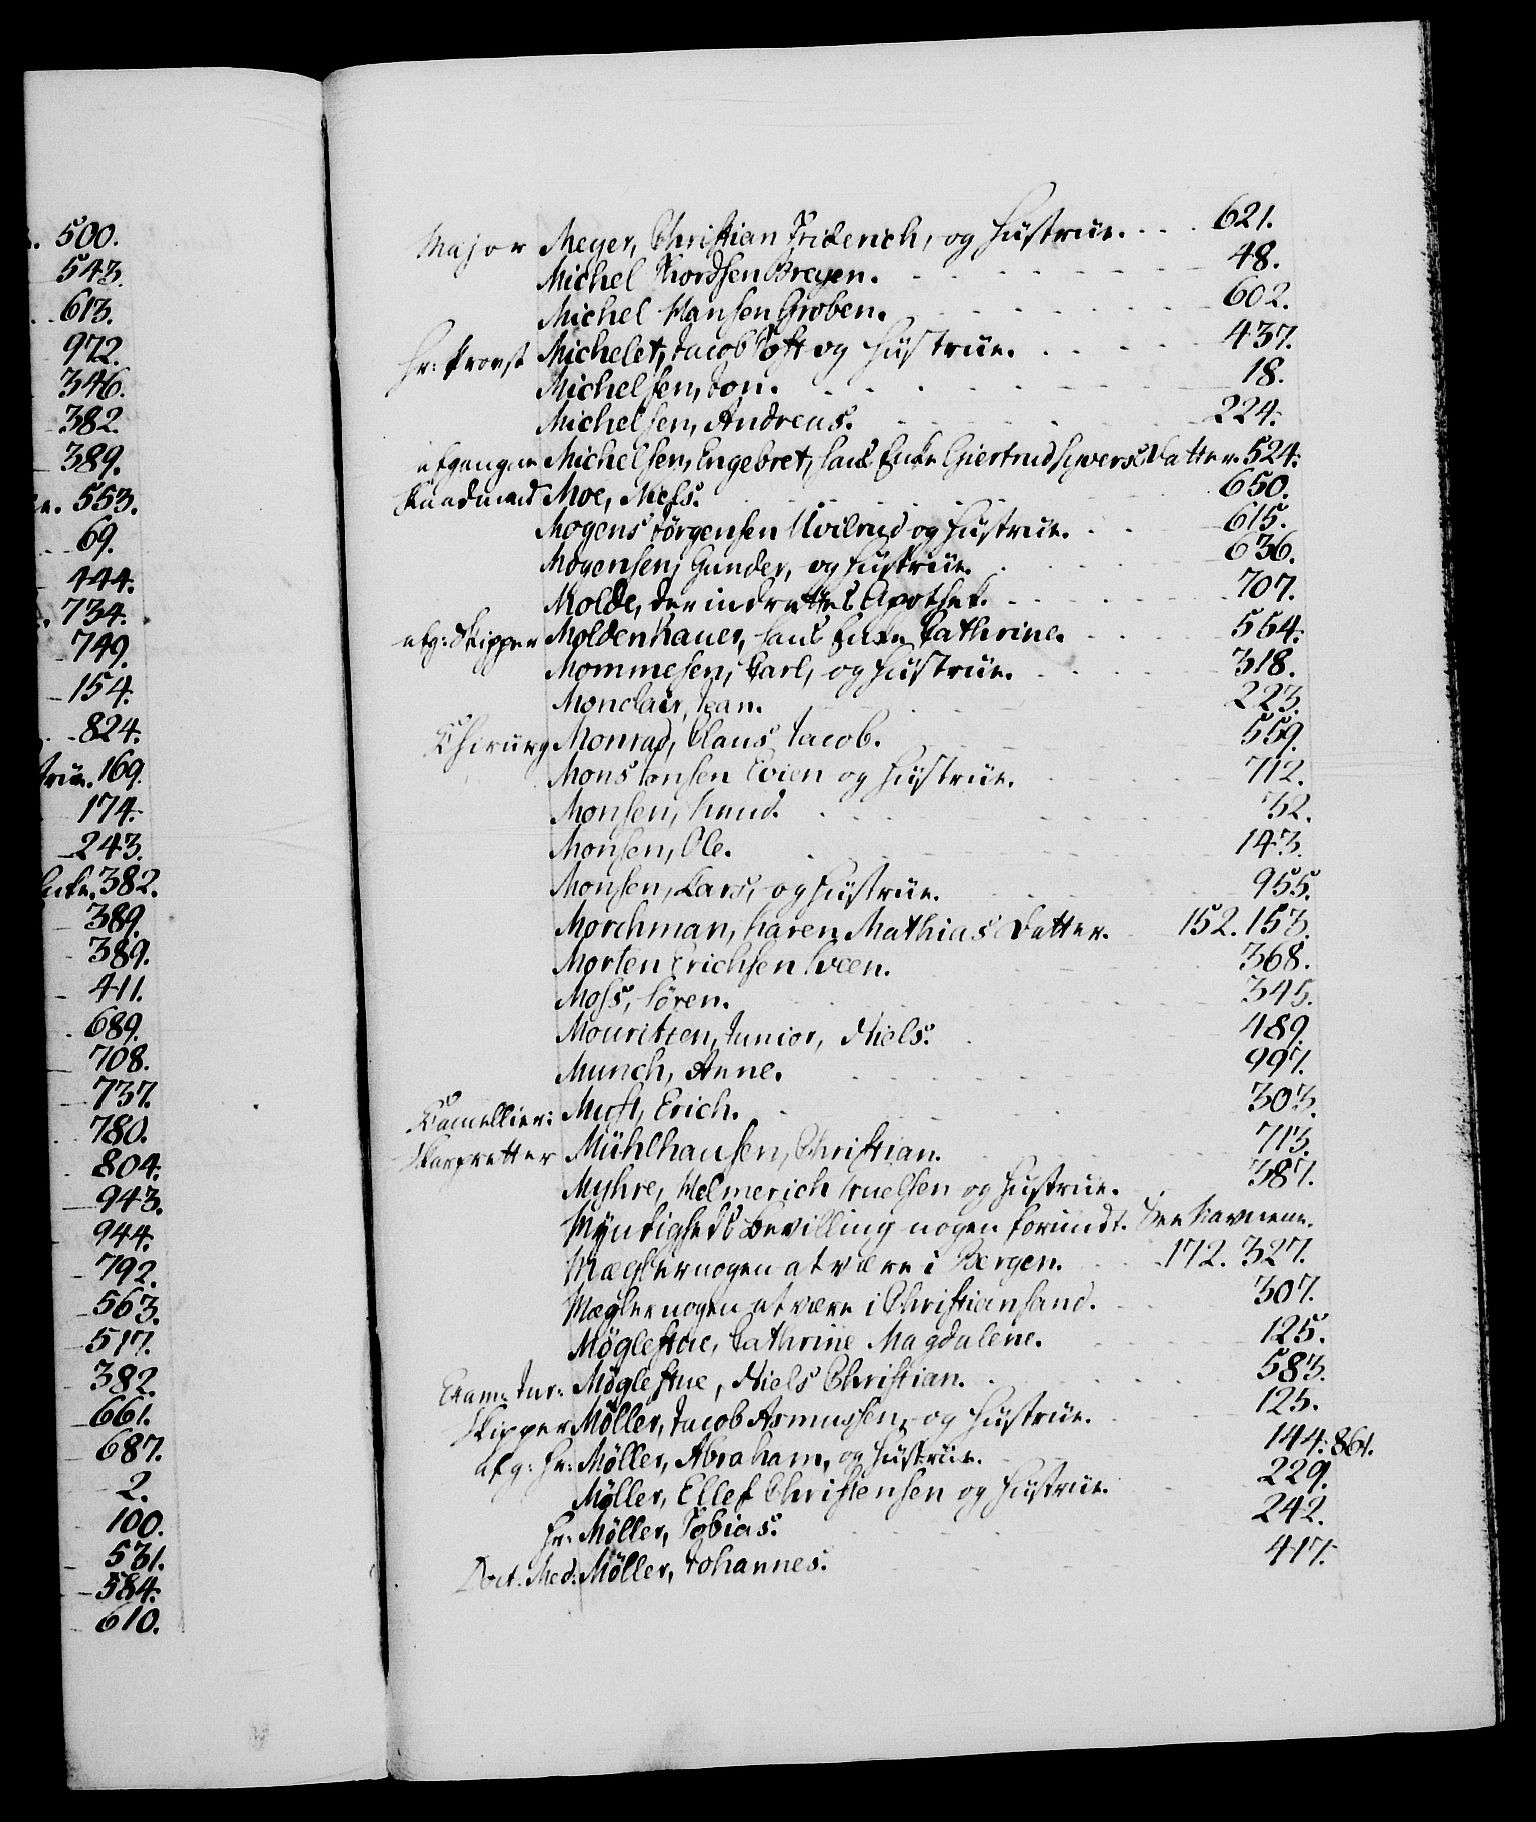 500.
543.
613.
972.
346.
382.
389.
553.
69.
444.
734.
749.
154.
824.
trüe. 169.
174.
243.
Enke. 382.
389.
389.
411.
689.
708.
737.
780.
804.
943.
944.
792.
563.
517.
382.
661.
687.
2.
100.
531.
584.
610.
Major Meyer, Christian Friderich, og Hustrüe. 621.
Michel Thordsen Breyen. 48.
Michel Hansen Groben. 602.
Hr: Provst Michelet, Jacob Post og Hüstrüe. 437.
Michelsen, Jon. 18.
Michelsen, Andreas. 224.
afgangne Michelsen, Engebret, hans Enke Giertrud Sivers Datter. 524.
Kaadmand Moe, Niels. 650.
Mogens Jörgensen Hvilrud og Hustrüe. 615.
Mogensen, Gunder, og Hustrüe. 636.
Molde, der indrettes Apothek. 707.
afg: Skipper Moldenhauer, hans Enke Cathrine. 554.
Mommesen, Carl, og Hüstrüe. 318.
Monclair, Jean. 223.
Chirurg Monrad, Claus Jacob. 559.
Mons Jonsen Evien og Hüstrüe. 712.
Monsen, Knud. 32.
Monsen, Ole. 143.
Monsen, Lars, og Hüstrüe. 955.
Morchman, Karen Mathias Datter. 152. 153.
Morten Erichsen Sveen. 368.
Moss, Sören. 345.
Mouritzen, Junior, Niels. 489.
Munch, Anne. 997.
Cancellier: Must, Erich. 303.
Skarpretter Mühlhausen, Christian. 713.
Myhre, Helmerich Truelsen og Hustrue. 387.
Myndigheds Bevilling nogen forundt. See Navnene.
Mægler nogen at være i Bergen. 172. 327.
Mægler nogen at være i Christiansand. 307.
Möglestue, Cathrine Magdalene. 125.
Exam: Jur: Möglestue, Niels Christian. 583.
Skipper Möller, Jacob Asmussen, og Hüstrüe. 125.
afg: Hr: Möller, Abraham, og Hustrüe. 144. 861.
Möller, Ellef Christensen og Hustrüe. 229.
Hr: Möller, Tobias. 242.
Doct. Med. Möller, Johannes. 417.